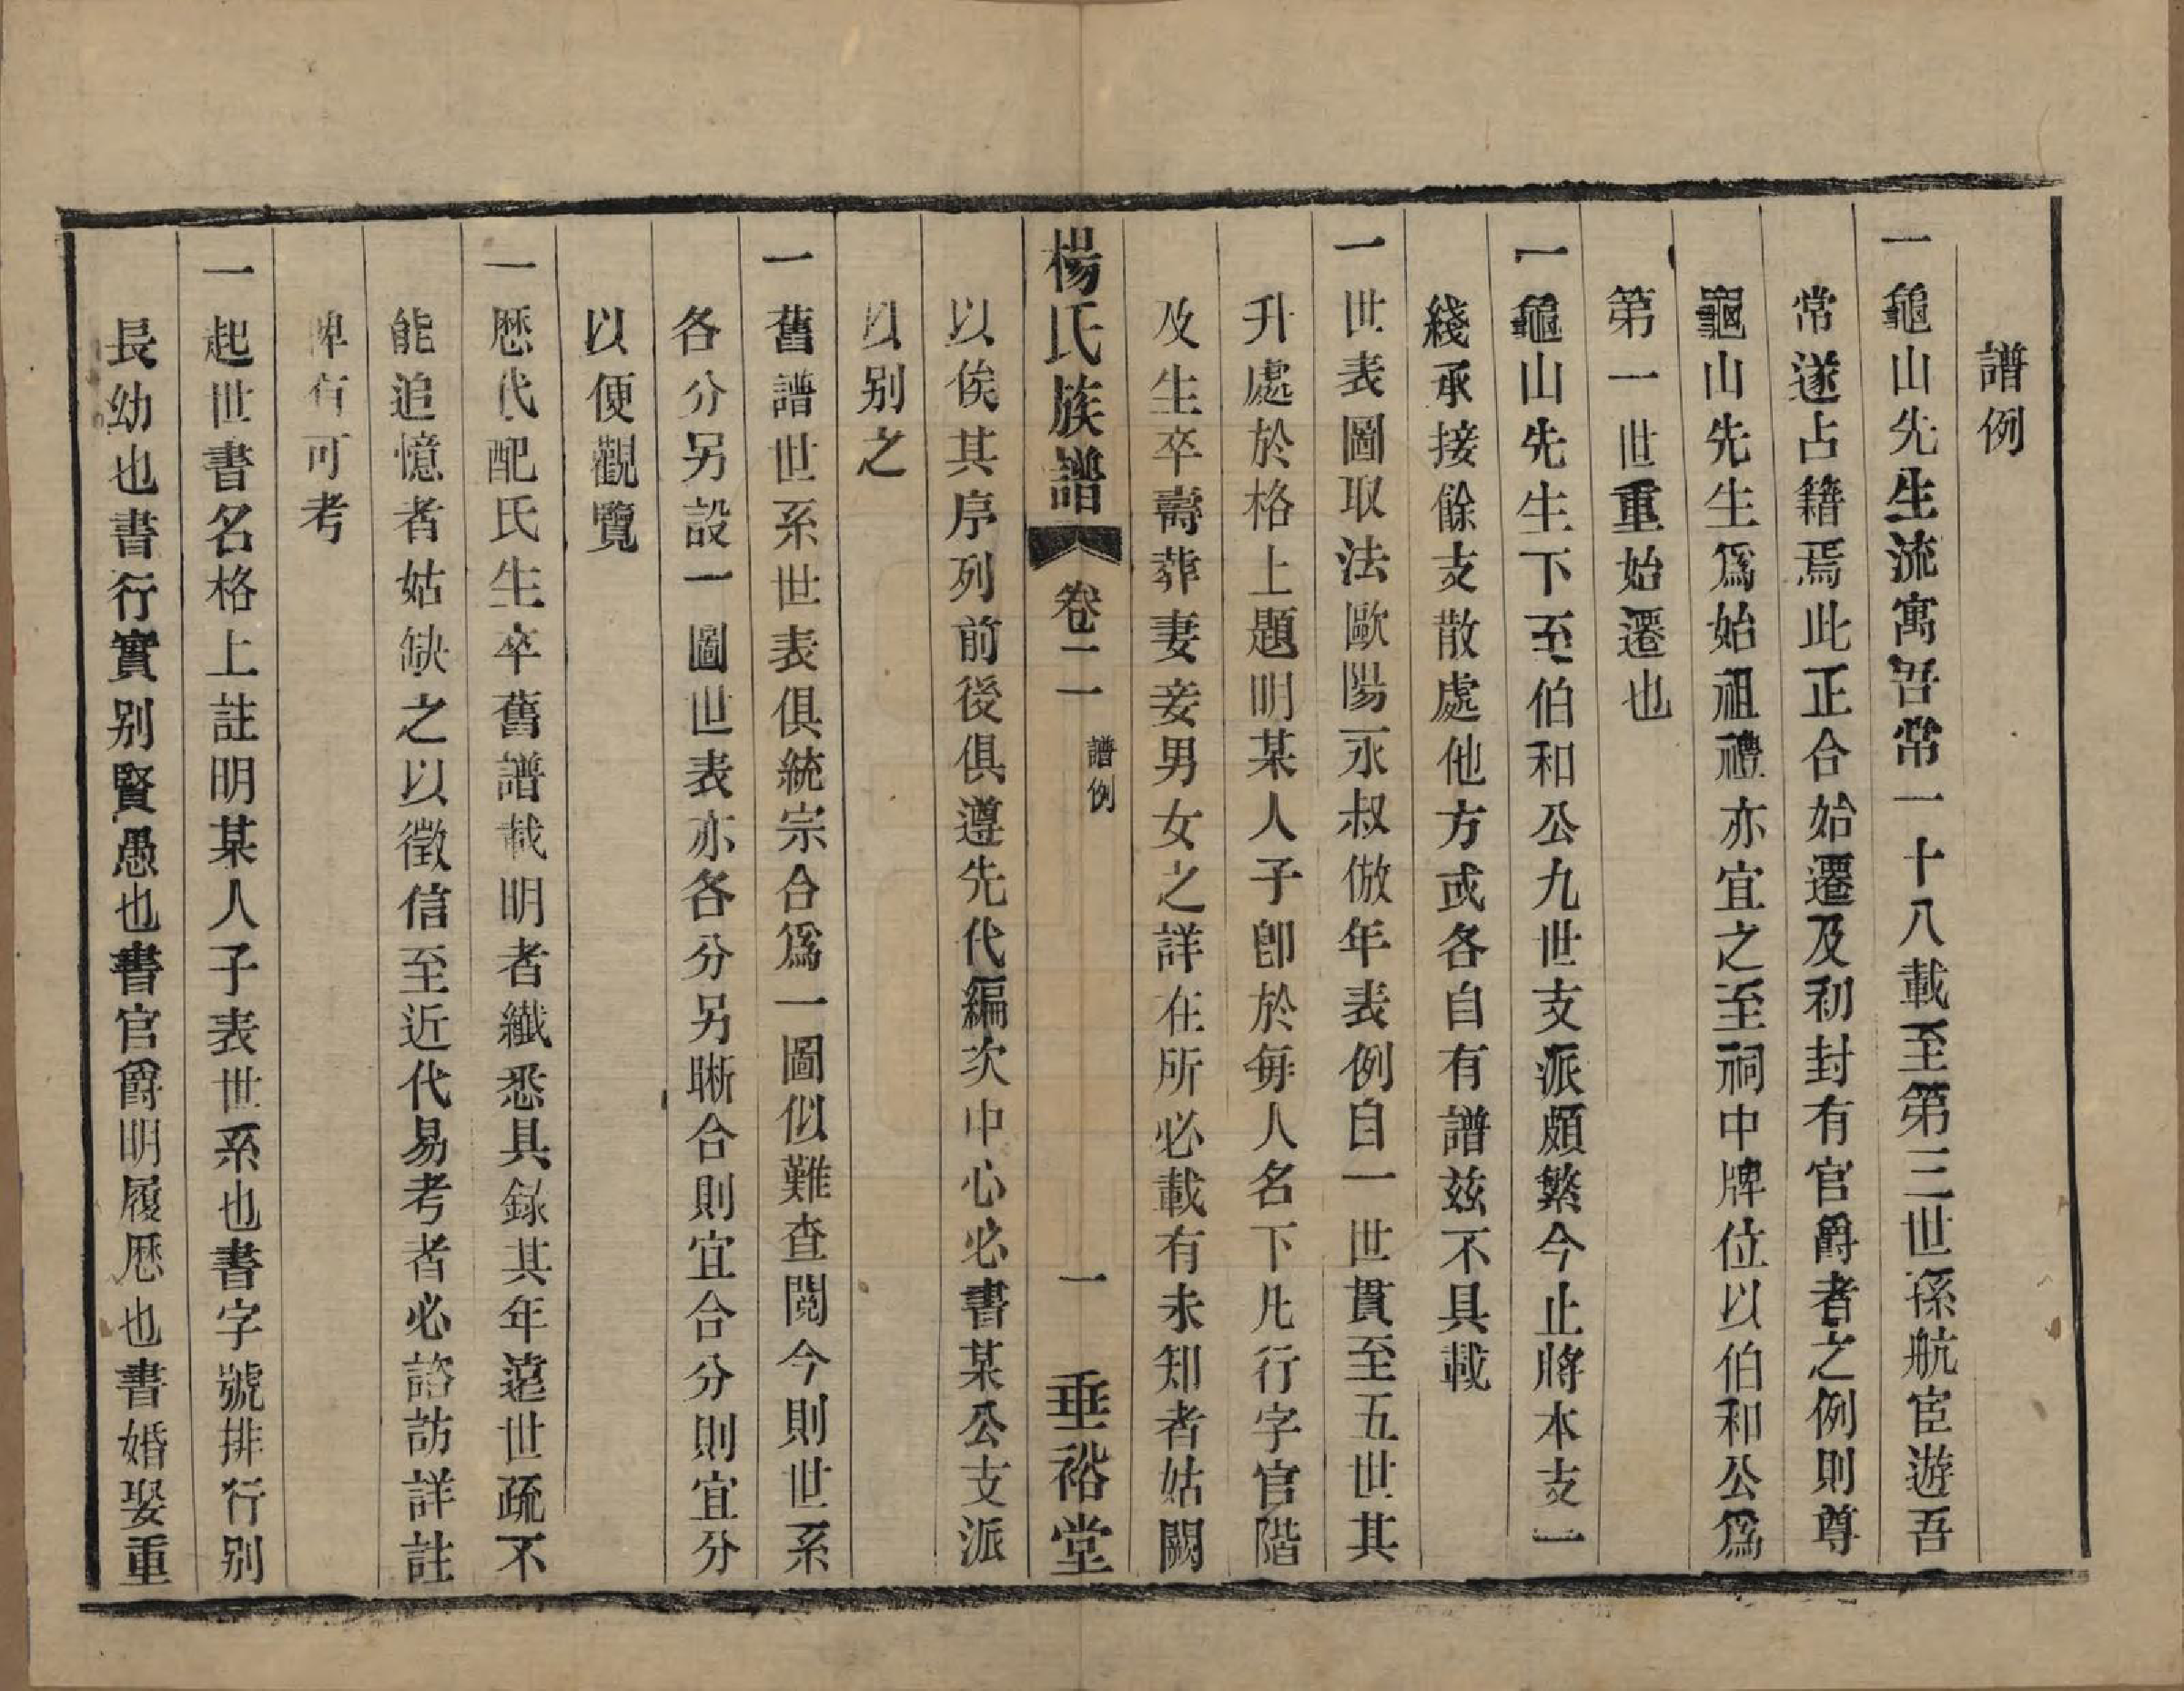 譜例
一龜山先生流寓吾常一十八載至第三世孫航宦遊吾
常遂占籍焉此正合始遷及初封有官爵者之例則尊
龜山先生爲始祖禮亦宜之至祠中牌位以伯和公爲
第一世重始遷也
一龜山先生下至伯和公九世支派頗繁今止將本支一
綫承接餘支散處他方或各自有譜茲不具載
一世表圖取法歐陽永叔倣年表例自一世貫至五世其
升處於格上題明某人子卽於每人名下凡行字官階
及生卒壽葬妻妾男女之詳在所必載有未知者姑闕
楊氏族譜 卷二一 譜例 一 垂裕堂
以俟其序列前後俱遵先代編次中心必書某公支派
以别之
一舊譜世系世表俱統宗合爲一圖似難查閱今則世系
各分另設一圖世表亦各分另晰合則宜合分則宜分
以便觀覽
一歷代配氏生卒舊譜載明者纖悉具錄其年遠世疏不
能追憶者姑缺之以徵信至近代易考者必諮訪詳註
俾有可考
一起世書名格上註明某人子表世系也書字號排行别
長幼也書行實别賢愚也書官爵明履歷也書婚娶重